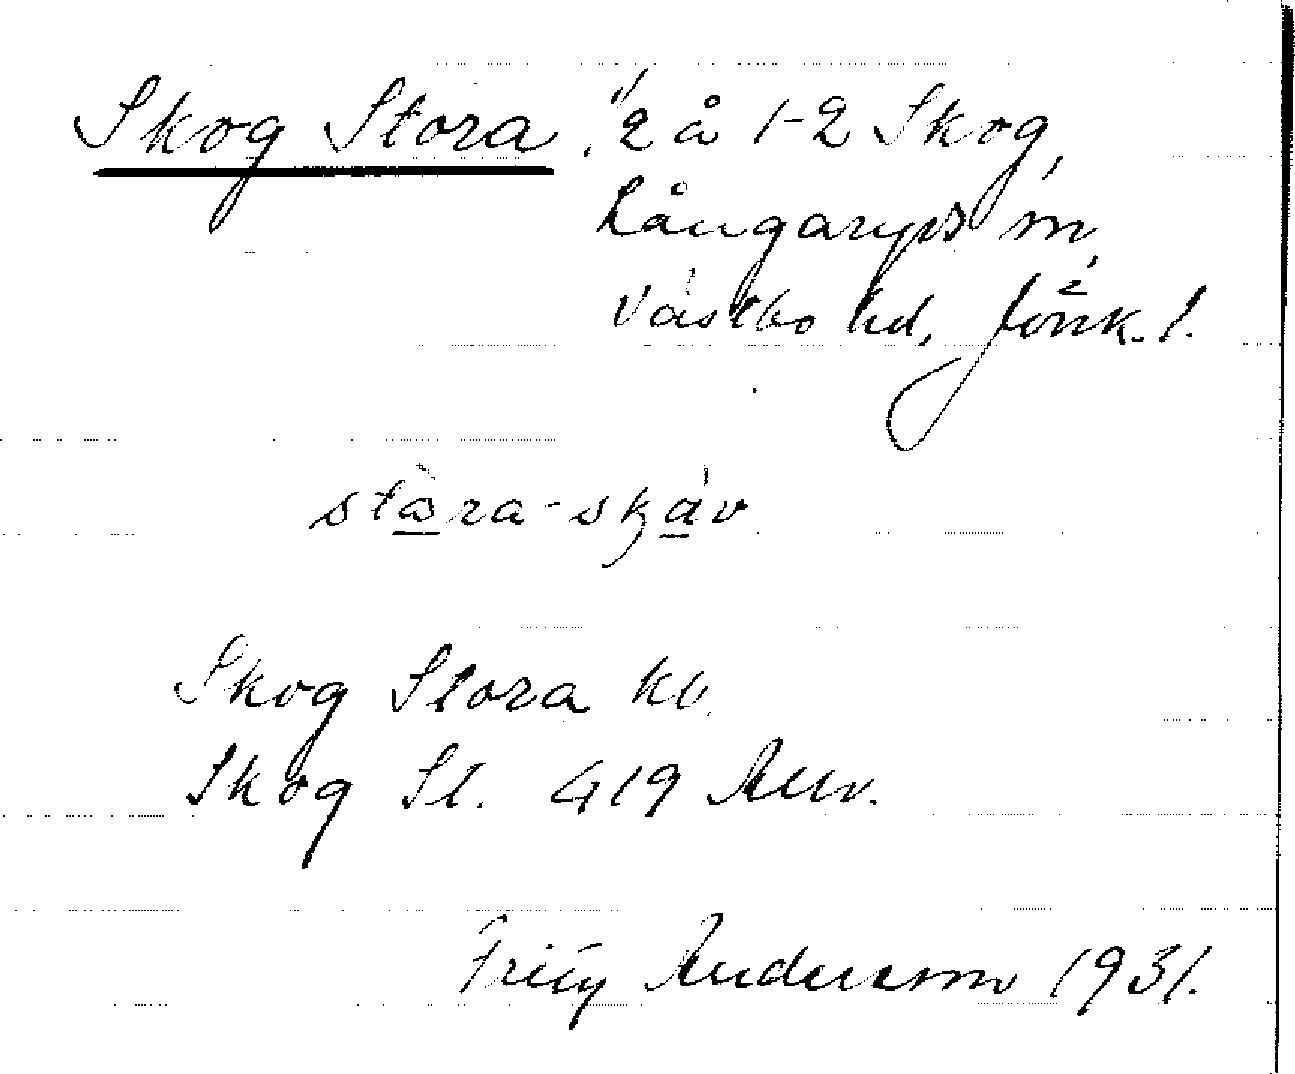 Skog Stora, 1/2 å 1-2 Skog,
Långaryds sn,
Västbo hd, Jönk. l.
ståra-skåv
Skog Stora kb.
Skog St. 419
Andersson 1931.